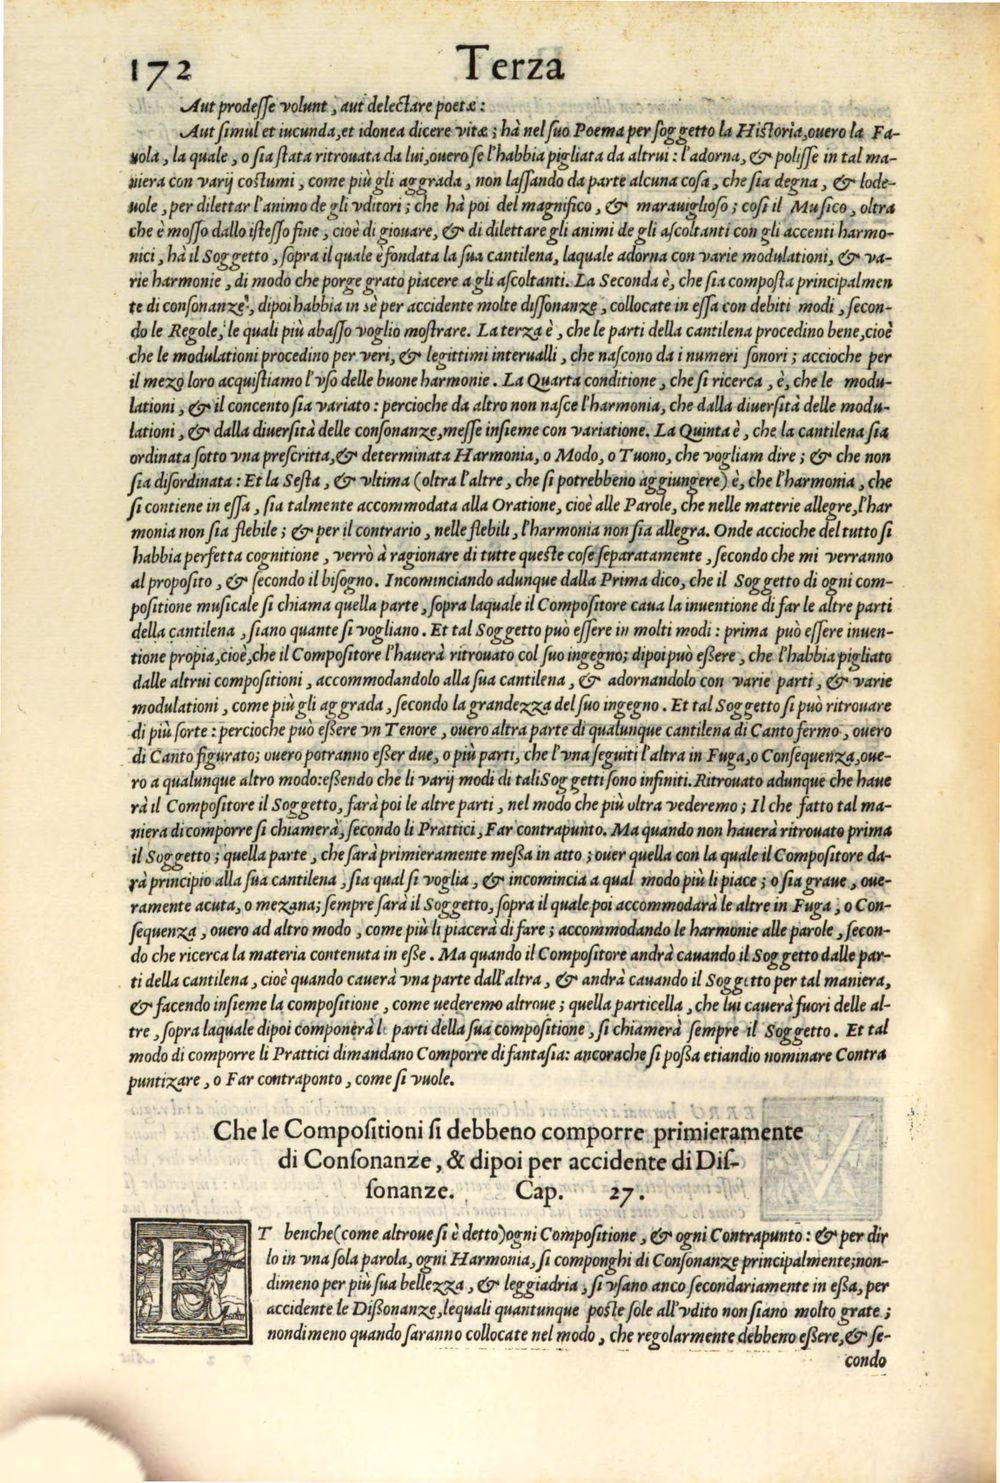 172 Terza
Aut prodesse volunt, aut delectare poetæ:
Aut simul et iucunda, et idonea dicere vitæ; hà nel suo Poema per soggetto la Historia, ouero la Fa-
uola, la quale, o sia stata ritrouata da lui, ouero se l'habbia pigliata da altrui: l'adorna, & polisse in tal ma-
niera con varij costumi, come più gli aggrada, non lassando da parte alcuna cosa, che sia degna, & lode-
uole, per dilettar l'animo de gli vditori; che hà poi del magnifico, & marauiglioso; così il Musico, oltra
che è mosso dallo istesso fine, cioè di giouare, & di dilettare gli animi de gli ascoltanti con gli accenti harmo-
nici, hà il Soggetto, sopra il quale è fondata la sua cantilena, laquale adorna con varie modulationi, & va-
rie harmonie, di modo che porge grato piacere a gli ascoltanti. La Seconda è, che sia composta principalmen
te di consonanze, dipoi habbia in sè per accidente molte dissonanze, collocate in essa con debiti modi, secon-
do le Regole, le quali più abasso voglio mostrare. La terza è, che le parti della cantilena procedino bene, cioè
che le modulationi procedino per veri, & legittimi interualli, che nascono da i numeri sonori; accioche per
il mezo loro acquistiamo l'vso delle buone harmonie. La Quarta conditione, che si ricerca, è, che le modu-
lationi, & il concento sia variato: percioche da altro non nasce l'harmonia, che dalla diuersità delle modu-
lationi, & dalla diuersità delle consonanze, messe insieme con variatione. La Quinta è, che la cantilena sia
ordinata sotto vna prescritta, & determinata Harmonia, o Modo, o Tuono, che vogliam dire; & che non
sia disordinata: Et la Sesta, & vltima (oltra l'altre, che si potrebbeno aggiungere) è, che l'harmonia, che
si contiene in essa, sia talmente accommodata alla Oratione, cioè alle Parole, che nelle materie allegre, l'har
monia non sia flebile; & per il contrario, nelle flebili, l'harmonia non sia allegra. Onde accioche del tutto si
habbia perfetta cognitione, verrò à ragionare di tutte queste cose separatamente, secondo che mi verranno
al proposito, & secondo il bisogno. Incominciando adunque dalla Prima dico, che il Soggetto di ogni com-
positione musicale si chiama quella parte, sopra laquale il Compositore caua la inuentione di far le altre parti
della cantilena, siano quante si vogliano. Et tal Soggetto può essere in molti modi: prima può essere inuen-
tione propia, cioè, che il Compositore l'hauerà ritrouato col suo ingegno; dipoi può eßere, che l'habbia pigliato
dalle altrui compositioni, accommodandolo alla sua cantilena, & adornandolo con varie parti, & varie
modulationi, come più gli aggrada, secondo la grandezza del suo ingegno. Et tal Soggetto si può ritrouare
di più sorte: percioche può eßere vn Tenore, ouero altra parte di qualunque cantilena di Canto fermo, ouero
di Canto figurato; ouero potranno eßer due, o più parti, che l'vna seguiti l'altra in Fuga, o Consequenza, oue-
ro a qualunque altro modo: eßendo che li varij modi di tali Soggetti sono infiniti. Ritrouato adunque che haue
rà il Compositore il Soggetto, farà poi le altre parti, nel modo che più oltra vederemo; Il che fatto tal ma-
niera di comporre si chiamerà, secondo li Prattici, Far contrapunto. Ma quando non hauerà ritrouato prima
il Soggetto; quella parte, che sarà primieramente meßa in atto; ouer quella con la quale il Compositore da-
rà principio alla sua cantilena, sia qual si voglia, & incomincia a qual modo più li piace; o sia graue, oue-
ramente acuta, o mezana; sempre sarà il Soggetto, sopra il quale poi accommodarà le altre in Fuga, o Con-
sequenza, ouero ad altro modo, come più li piacerà di fare; accommodando le harmonie alle parole, secon-
do che ricerca la materia contenuta in eße. Ma quando il Compositore andrà cauando il Soggetto dalle par-
ti della cantilena, cioè quando cauerà vna parte dall'altra, & andrà cauando il Soggetto per tal maniera,
& facendo insieme la compositione, come uederemo altroue; quella particella, che lui cauerà fuori delle al-
tre, sopra laquale dipoi componerà le parti della sua compositione, si chiamerà sempre il Soggetto. Et tal
modo di comporre li Prattici dimandano Comporre di fantasia: ancorache si poßa etiandio nominare Contra
puntizare, o Far contraponto, come si vuole.
Che le Compositioni si debbeno comporre primieramente
di Consonanze, & dipoi per accidente di Dis-
sonanze. Cap. 27.
ET benche (come altroue si è detto) ogni Compositione, & ogni Contrapunto: & per dir
lo in vna sola parola, ogni Harmonia, si componghi di Consonanze principalmente; non-
dimeno per più sua bellezza, & leggiadria, si vsano anco secondariamente in eßa, per
accidente le Dißonanze, lequali quantunque poste sole all'vdito non siano molto grate;
nondimeno quando saranno collocate nel modo, che regolarmente debbeno eßere, & se-
condo